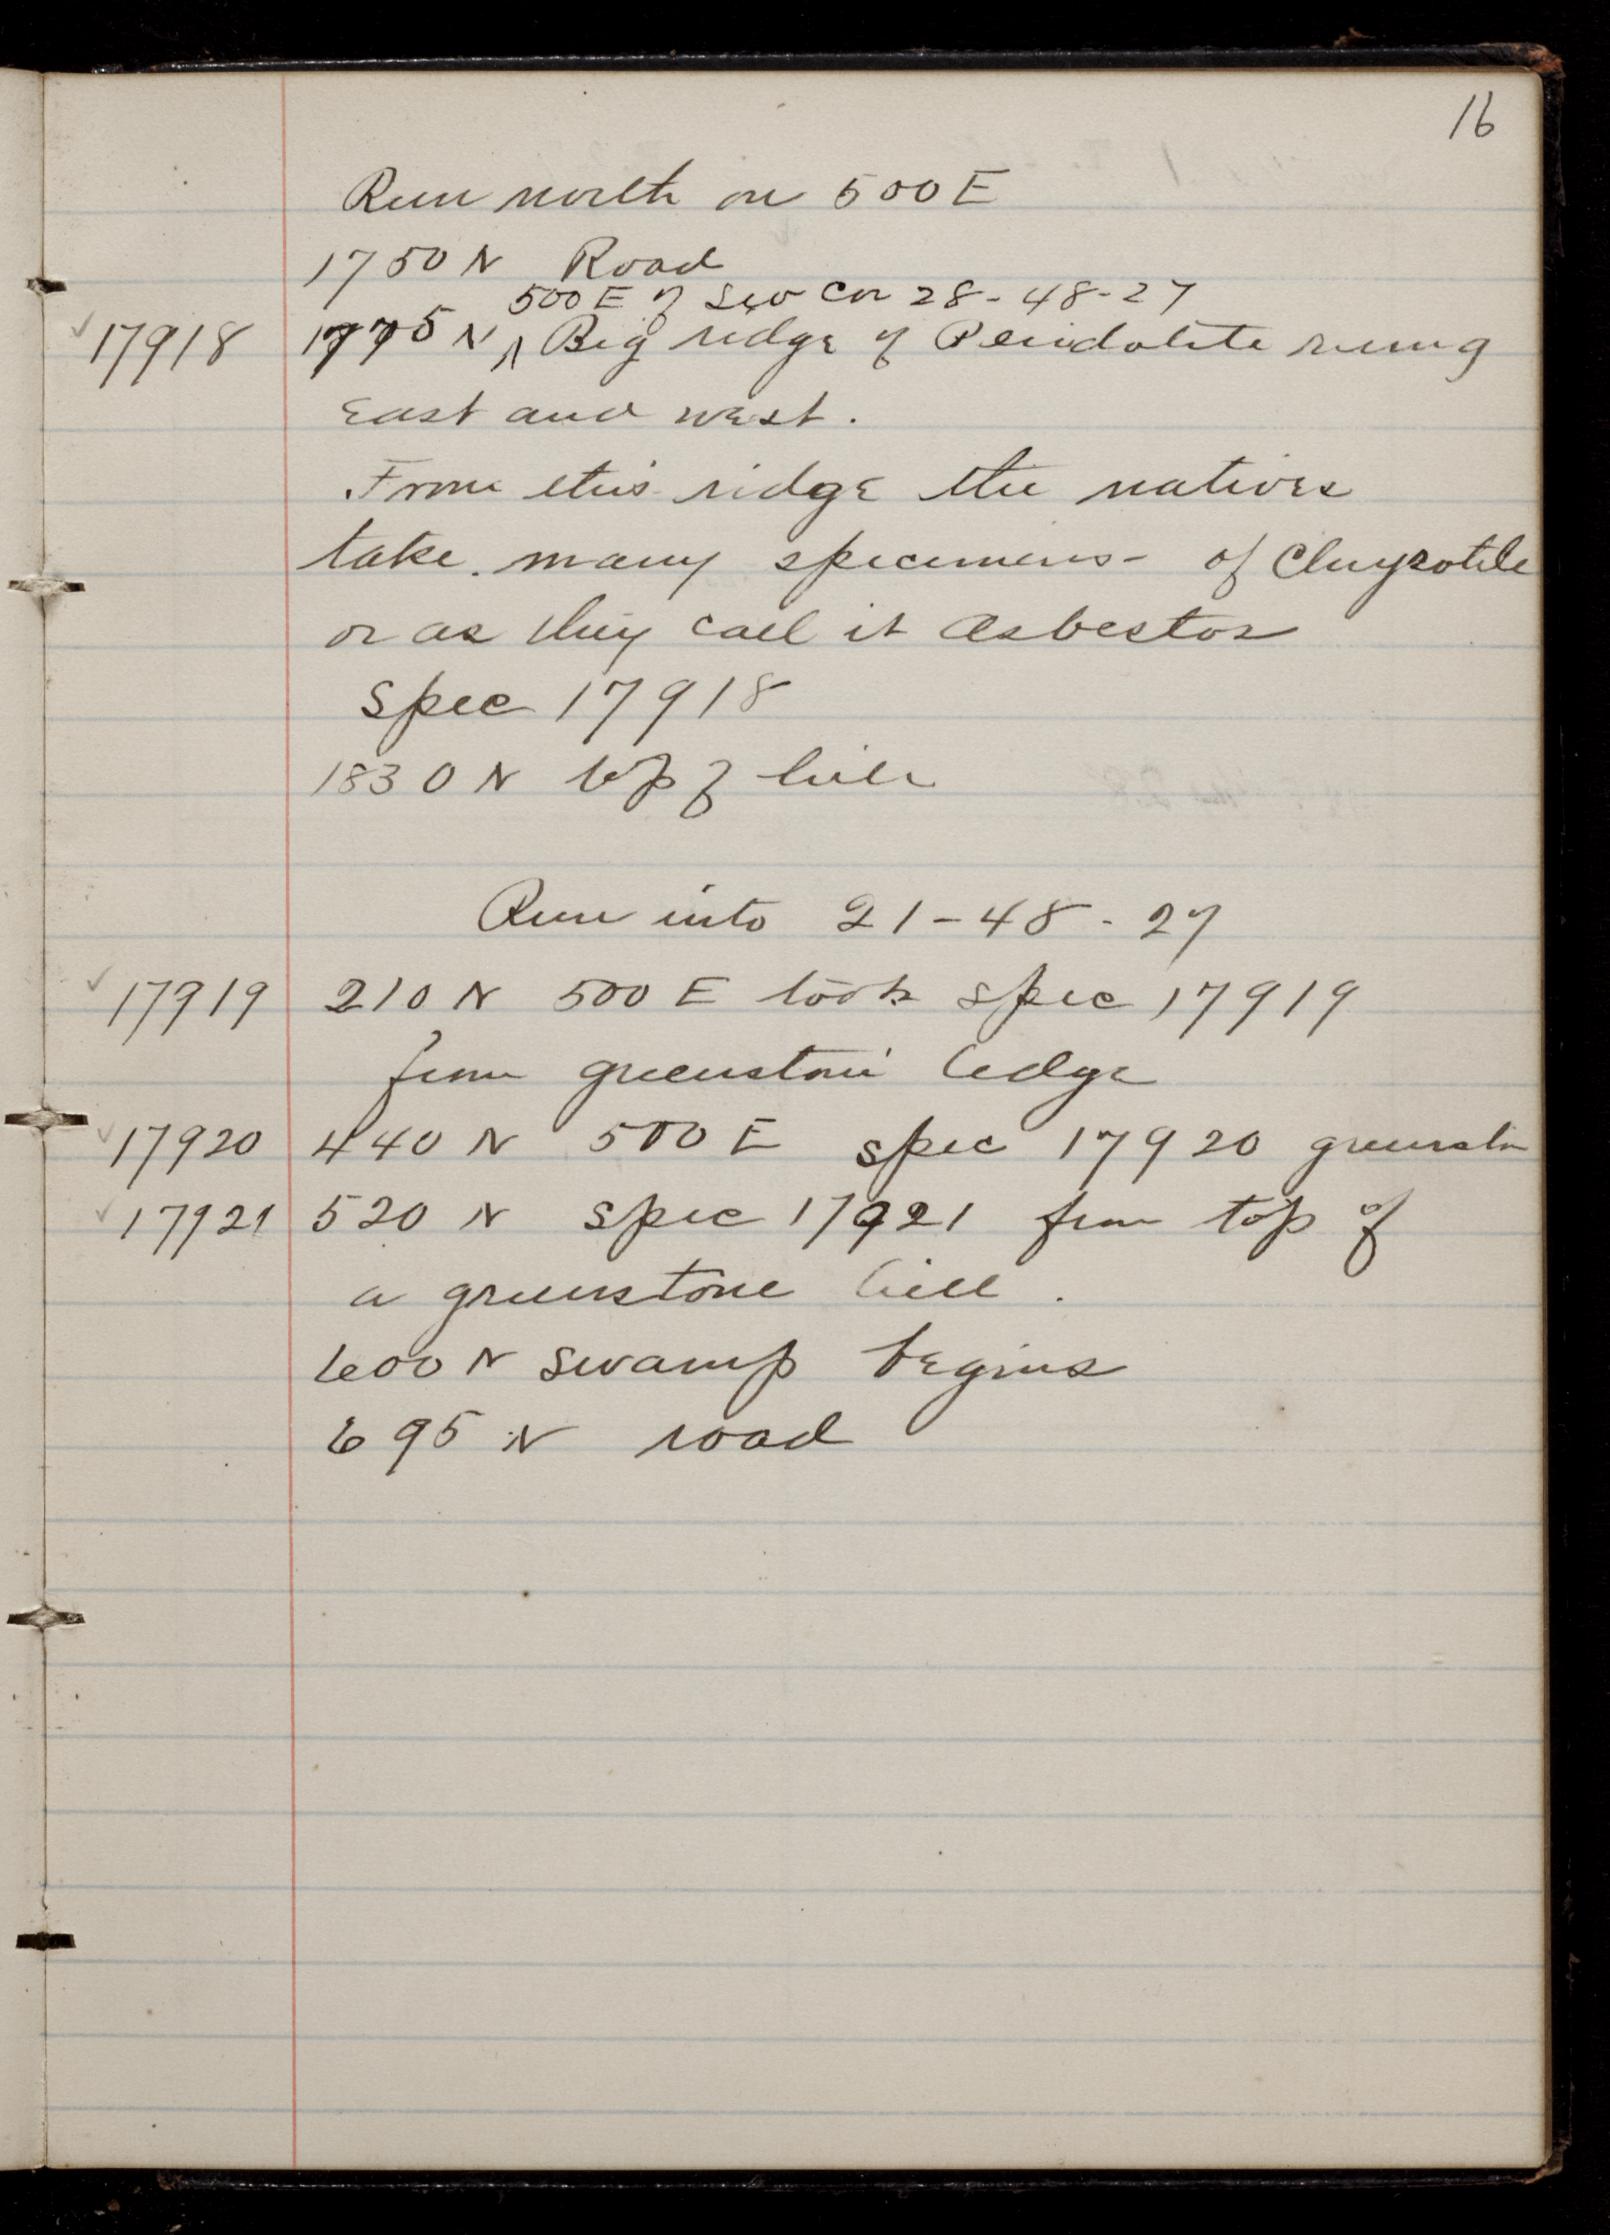 16
Run north on 500 E
1750 N Road
500 E of SW Cor 28-48-27
17918 1775 N ^ Big ridge of Peridotite runng
East and west.
From this ridge the natives
take many specimens - of Chrysotile
or as they call it Asbestos
Spec 17918
1830 N top of hill
Run into 21-48-27
17919 210 N 500 E took spec 17919
from greenstone ledge
17920 440 N 500 E spec 17920 greenstn
17921 520 N spec 17921 from top of
a greenstone hill.
600 N swamp begins
695 N road